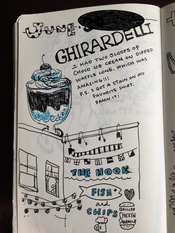 JUNE
GHIRARDELLI
I HAD TWO SCOOPS OF
CHOCO ICE CREAM ON DIPPED
WAFFLE CONE WHICH WAS
AMAZING!!!
P.S. I GOT A STAIN ON MY
FAVOURITE SHIRT.
DAMN IT!
THE HOOK
FISH
and
CHIPS
GRILLED
CHICKEN
SANDWICH